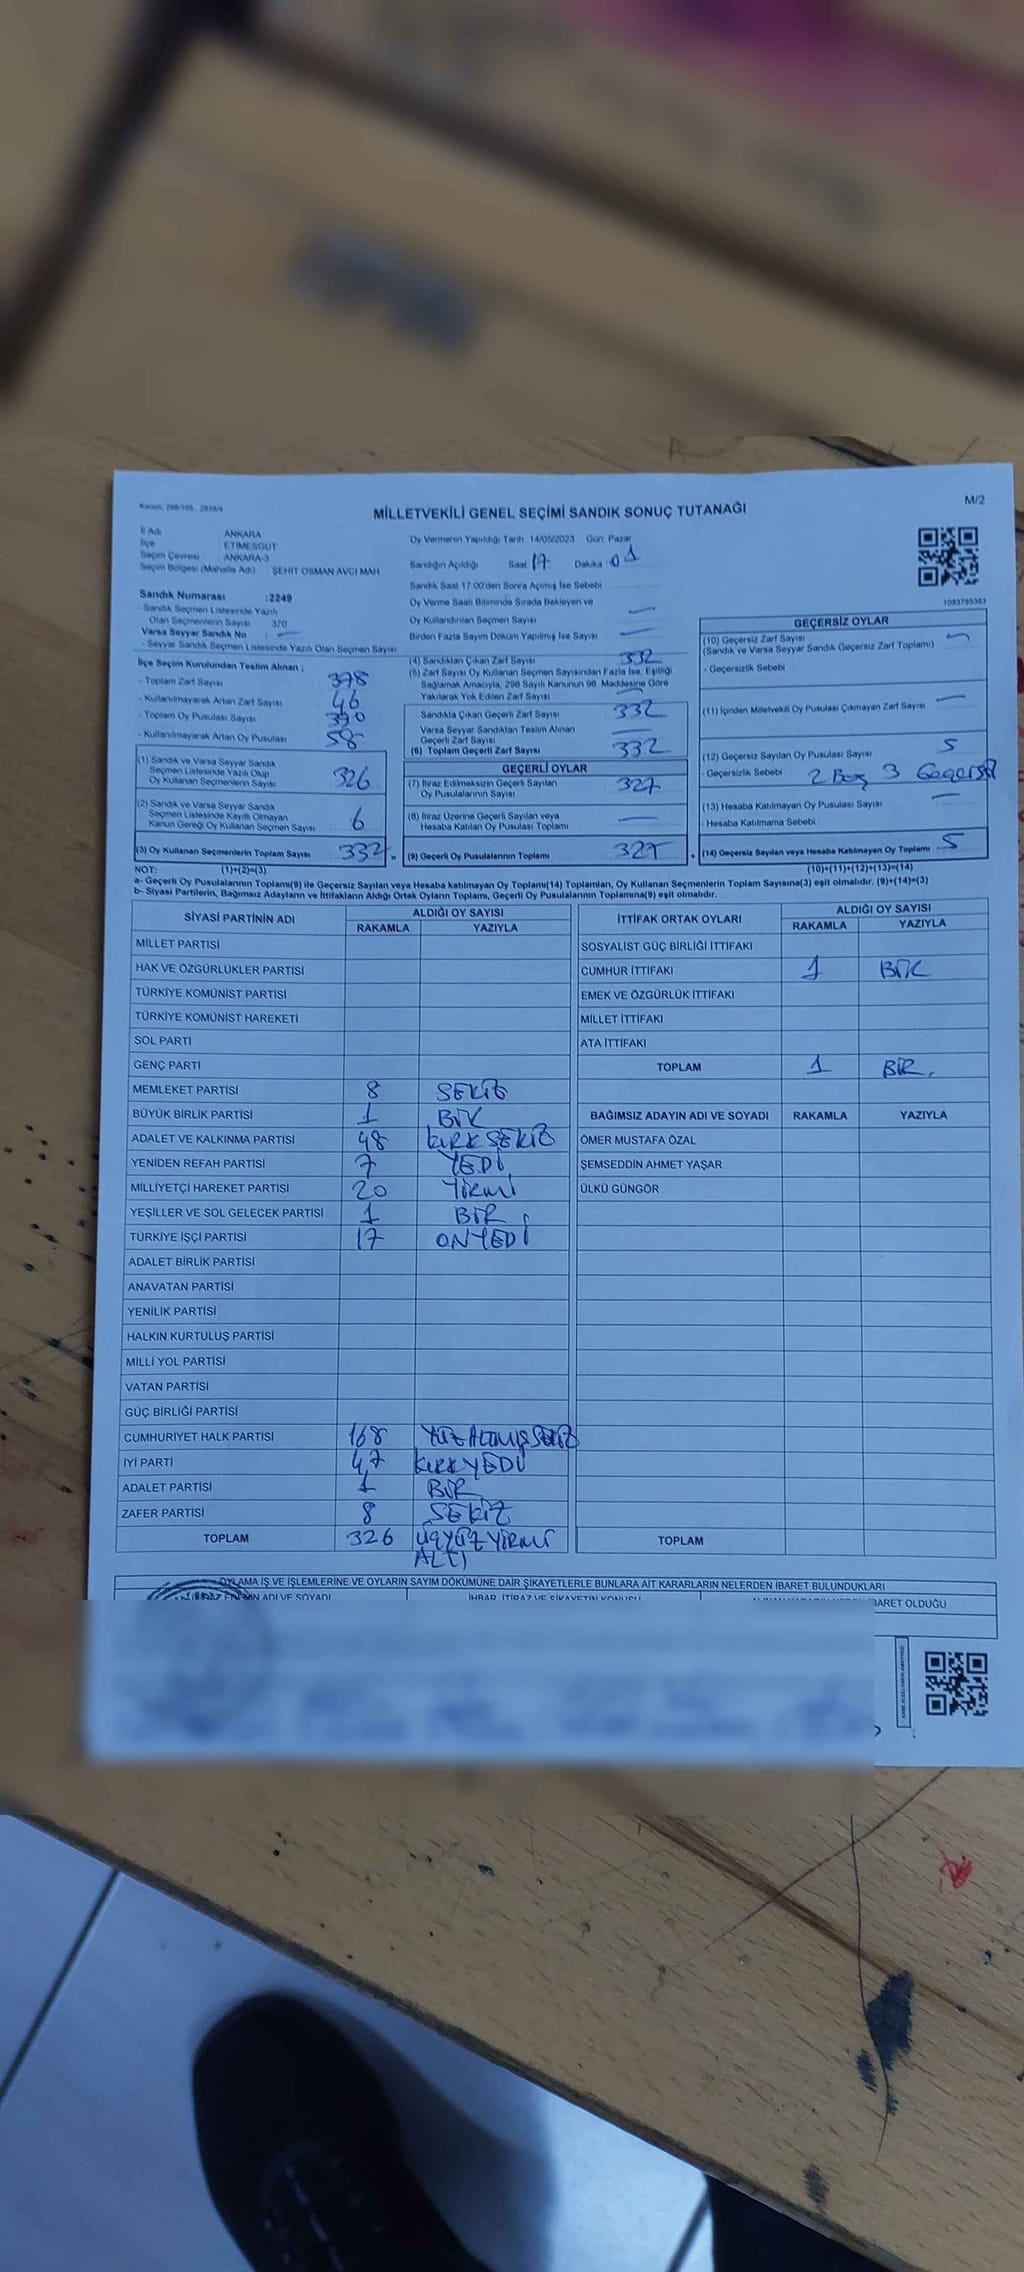 Kanun: 298/105 , 2839/4
M/2
MİLLETVEKİLİ GENEL SEÇİMİ SANDIK SONUÇ TUTANAĞI
İl Adı : ANKARA
İlçe : ETİMESGUT
Seçim Çevresi : ANKARA-3
Seçim Bölgesi (Mahalle Adı) : ŞEHİT OSMAN AVCI MAH.
Oy Vermenin Yapıldığı Tarih :14/05/2023 Gün: Pazar
Sandığın Açıldığı Saat: 17 Dakika: 01
Sandık Saat 17:00'den Sonra Açılmış İse Sebebi
Oy Verme Saati Bitiminde Sırada Bekleyen ve
Oy Kullandırılan Seçmen Sayısı —
Birden Fazla Sayım Döküm Yapılmış İse Sayısı —
1083795383
Sandık Numarası :2249
- Sandık Seçmen Listesinde Yazılı
Olan Seçmenlerin Sayısı 370
Varsa Seyyar Sandık No : —
- Seyyar Sandık Seçmen Listesinde Yazılı Olan Seçmen Sayısı
İlçe Seçim Kurulundan Teslim Alınan ;
- Toplam Zarf Sayısı 378
- Kullanılmayarak Artan Zarf Sayısı 46
- Toplam Oy Pusulası Sayısı 390
- Kullanılmayarak Artan Oy Pusulası 58
(1) Sandık ve Varsa Seyyar Sandık
Seçmen Listesinde Yazılı Olup
Oy Kullanan Seçmenlerin Sayısı 326
(2) Sandık ve Varsa Seyyar Sandık
Seçmen Listesinde Kayıtlı Olmayan
Kanun Gereği Oy Kullanan Seçmen Sayısı 6
(3) Oy Kullanan Seçmenlerin Toplam Sayısı 332 =
(4) Sandıktan Çıkan Zarf Sayısı 332
(5) Zarf Sayısı Oy Kullanan Seçmen Sayısından Fazla İse, Eşitliği
Sağlamak Amacıyla, 298 Sayılı Kanunun 98. Maddesine Göre
Yakılarak Yok Edilen Zarf Sayısı —
Sandıkta Çıkan Geçerli Zarf Sayısı 332
Varsa Seyyar Sandıktan Teslim Alınan
Geçerli Zarf Sayısı
(6) Toplam Geçerli Zarf Sayısı 332
GEÇERLİ OYLAR
(7) İtiraz Edilmeksizin Geçerli Sayılan
Oy Pusulalarının Sayısı 327
(8) İtiraz Üzerine Geçerli Sayılan veya
Hesaba Katılan Oy Pusulası Toplamı —
(9) Geçerli Oy Pusulalarının Toplamı 327 +
GEÇERSİZ OYLAR
(10) Geçersiz Zarf Sayısı —
(Sandık ve Varsa Seyyar Sandık Geçersiz Zarf Toplamı)
- Geçersizlik Sebebi
(11) İçinden Milletvekili Oy Pusulası Çıkmayan Zarf Sayısı —
(12) Geçersiz Sayılan Oy Pusulası Sayısı 5
- Geçersizlik Sebebi 2 Boş 3 Geçersiz
(13) Hesaba Katılmayan Oy Pusulası Sayısı —
- Hesaba Katılmama Sebebi :
(14) Geçersiz Sayılan veya Hesaba Katılmayan Oy Toplamı 5
NOT: (1)+(2)=(3) (10)+(11)+(12)+(13)=(14)
a- Geçerli Oy Pusulalarının Toplamı(9) ile Geçersiz Sayılan veya Hesaba katılmayan Oy Toplamı(14) Toplamları, Oy Kullanan Seçmenlerin Toplam Sayısına(3) eşit olmalıdır. (9)+(14)=(3)
b- Siyasi Partilerin, Bağımsız Adayların ve İttifakların Aldığı Ortak Oyların Toplamı, Geçerli Oy Pusulalarının Toplamına(9) eşit olmalıdır.
SİYASİ PARTİNİN ADI ALDIĞI OY SAYISI
RAKAMLA YAZIYLA
MİLLET PARTİSİ
HAK VE ÖZGÜRLÜKLER PARTİSİ
TÜRKİYE KOMÜNİST PARTİSİ
TÜRKİYE KOMÜNİST HAREKETİ
SOL PARTİ
GENÇ PARTİ
MEMLEKET PARTİSİ 8 SEKİZ
BÜYÜK BİRLİK PARTİSİ 1 BİR
ADALET VE KALKINMA PARTİSİ 48 KIRKSEKİZ
YENİDEN REFAH PARTİSİ 7 YEDİ
MİLLİYETÇİ HAREKET PARTİSİ 20 YİRMİ
YEŞİLLER VE SOL GELECEK PARTİSİ 1 BİR
TÜRKİYE İŞÇİ PARTİSİ 17 ONYEDİ
ADALET BİRLİK PARTİSİ
ANAVATAN PARTİSİ
YENİLİK PARTİSİ
HALKIN KURTULUŞ PARTİSİ
MİLLİ YOL PARTİSİ
VATAN PARTİSİ
GÜÇ BİRLİĞİ PARTİSİ
CUMHURİYET HALK PARTİSİ 168 YÜZALTMIŞSEKİZ
İYİ PARTİ 47 KIRKYEDİ
ADALET PARTİSİ 1 BİR
ZAFER PARTİSİ 8 SEKİZ
TOPLAM 326 ÜÇYÜZYİRMİ
ALTI
İTTİFAK ORTAK OYLARI ALDIĞI OY SAYISI
RAKAMLA YAZIYLA
SOSYALİST GÜÇ BİRLİĞİ İTTİFAKI
CUMHUR İTTİFAKI 1 BİR
EMEK VE ÖZGÜRLÜK İTTİFAKI
MİLLET İTTİFAKI
ATA İTTİFAKI
TOPLAM 1 BİR.
BAĞIMSIZ ADAYIN ADI VE SOYADI RAKAMLA YAZIYLA
ÖMER MUSTAFA ÖZAL
ŞEMSEDDİN AHMET YAŞAR
ÜLKÜ GÜNGÖR
TOPLAM
OYLAMA İŞ VE İŞLEMLERİNE VE OYLARIN SAYIM DÖKÜMÜNE DAİR ŞİKAYETLERLE BUNLARA AİT KARARLARIN NELERDEN İBARET BULUNDUKLARI
ADI VE SOYADI İHBAR, İTİRAZ VE ŞİKAYETİN KONUSU İBARET OLDUĞU